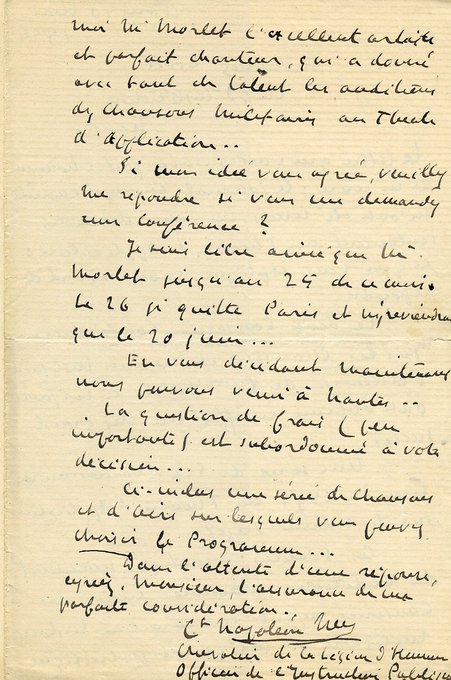 moi Mr Morlet l'excellent artiste
et parfait chanteur, qui a donné
avec tant de talent les auditions
des Chansons Militaires au Théâtre
d'Application..
Si mon idée vous agrée, veuillez
me répondre si vous me demandez
une Conférence ?
Je suis libre ainsi que Mr.
Morlet jusqu'au 25 de ce mois.
Le 26 je quitte Paris et n'y reviendrai
que le 20 juin...
En vous décidant maintenant
nous pouvons venir à Nantes..
La question de frais (peu
importante) est subordonné à votre
décision...
Ci-inclus une série de chansons
et d'airs sur lesquels vous pouvez
choisir le Programme...
Dans l'attente d'une réponse,
agréez, Monsieur, l'assurance de ma
parfaite considération.,
Ct Napoléon Ney
Chevalier de la Légion d'Honneur
Officier de l'Instruction Publique